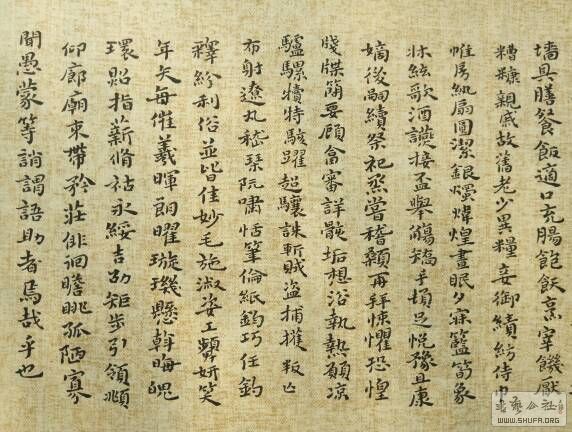 墙具膳餐飯適口充腸飽飫烹宰饑厭
糟糠親戚故舊老少異糧妾御績紡侍巾
帷房紈扇圓潔銀燭煒煌晝眠夕寐籃筍象
牀絃歌酒讌接盃舉觴矯手頓足悅豫且康
嫡後嗣續祭祀蒸嘗稽顙再拜悚懼恐惶
牋牒簡要顧畣審詳骸垢想浴執熱願凉
驢騾犢特駭躍超驤誅斬賊盜捕獲叛亡
布射遼丸嵇琴阮嘯恬筆倫紙鈞巧任釣
釋紛利俗並皆佳妙毛施淑姿工顰妍笑
年矢每催羲暉朗曜璇璣懸斡晦魄
環照指薪脩祜永綏吉劭矩步引領俯
仰廊廟束帶矜莊徘徊瞻眺孤陋寡
聞愚蒙等誚謂語助者焉哉乎也
WWW.SHUFA.ORG